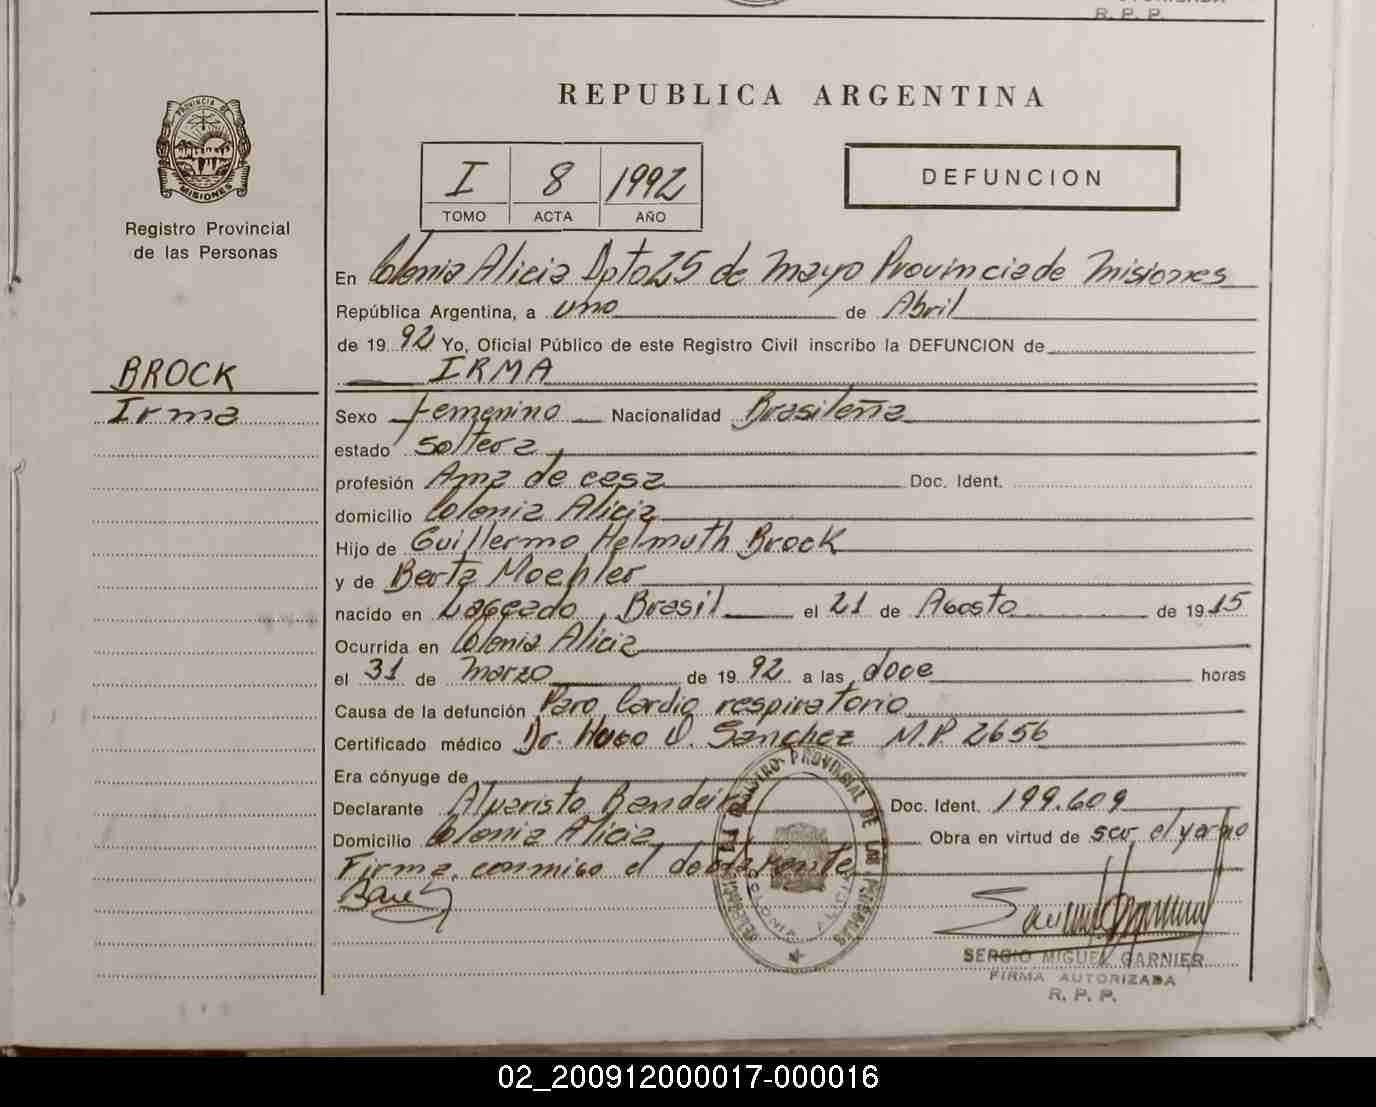 R. P. P.
REPUBLICA ARGENTINA
PROVINCIA DE
MISIONES
Registro Provincial
de las Personas
I 8 1992
TOMO ACTA AÑO
DEFUNCION
En Colonia Alicia Dpto 25 de Mayo Provincia de Misiones
República Argentina, a uno de Abril
de 19 92 Yo, Oficial Público de este Registro Civil inscribo la DEFUNCION de
BROCK
IRMA
Irma
Sexo Femenino Nacionalidad Brasileña
estado soltera
profesión Ama de casa Doc. Ident.
domicilio Colonia Alicia
Hijo de Guillermo Helmuth Brock
y de Berta Moehler
nacido en Lageado, Brasil el 21 de Agosto de 19 15
Ocurrida en Colonia Alicia
el 31 de marzo de 19 92 a las doce horas
Causa de la defunción Paro Cardio respiratorio
Certificado médico Dr. Hugo O. Sanchez M.P 2656
Era cónyuge de
Declarante Alvaristo Bandeira Doc. Ident. 199.609
Domicilio Colonia Alicia Obra en virtud de ser el yerno
Firma conmigo el declarante
REGISTRO PROVINCIAL DE LAS PERSONAS
COLONIA ALICIA
SERGIO MIGUEL GARNIER
FIRMA AUTORIZADA
R. P. P.
02_200912000017-000016